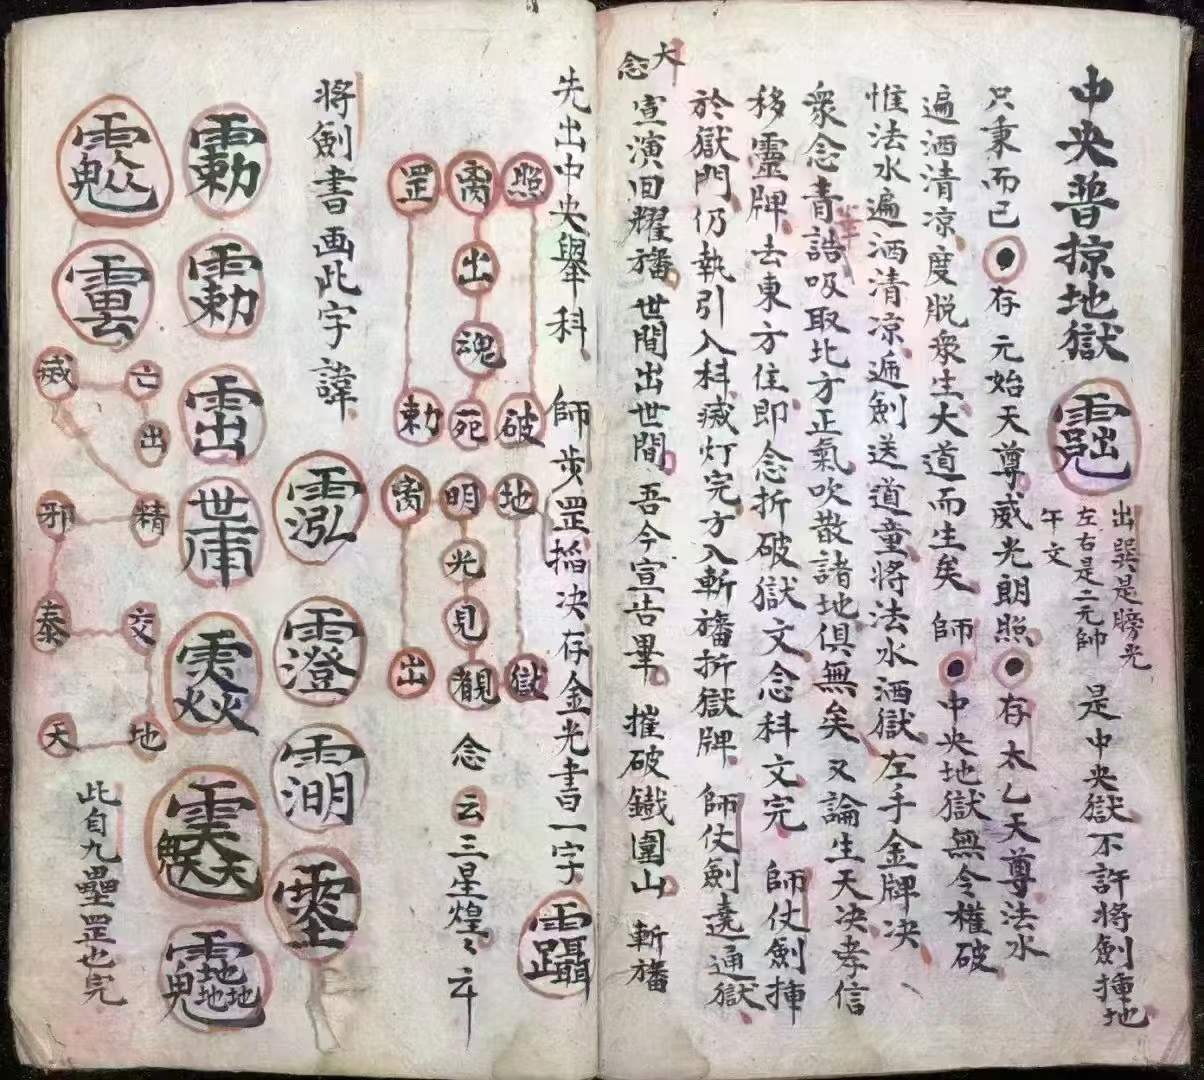 中央普掠地獄
出巽是膀光
左右是二元帥
午文
是中央獄不許將劍揷地
只秉而已 存 元始天尊威光朗照 存太乙天尊法水
遍洒清凉度脱衆生大道而生矣 師 中央地獄無令權破
惟法水遍洒清凉遍劍送道童將法水洒獄左手金牌决
衆念青誥吸取北方正氣吹散諸地俱無矣又論生天决孝信
移靈牌去東方住即念折破獄文念科文完 師仗劍揷
於獄門仍執引入科滅灯完方入斬旛折獄牌 師仗劍遶通獄
大念
宣演囘耀旛世間出世間吾今宣告畢 摧破鐵圍山 斬旛
先出中央舉科 師步罡掐决存金光書一字
照 离 罡
出
魂
破 死 勅
地 明 离
光
見
獄 觀 出
念云三星煌〻云
將劍書画此字諱
滅 亡
出
邪 精
泰 交
天 地
此自九壘罡也完